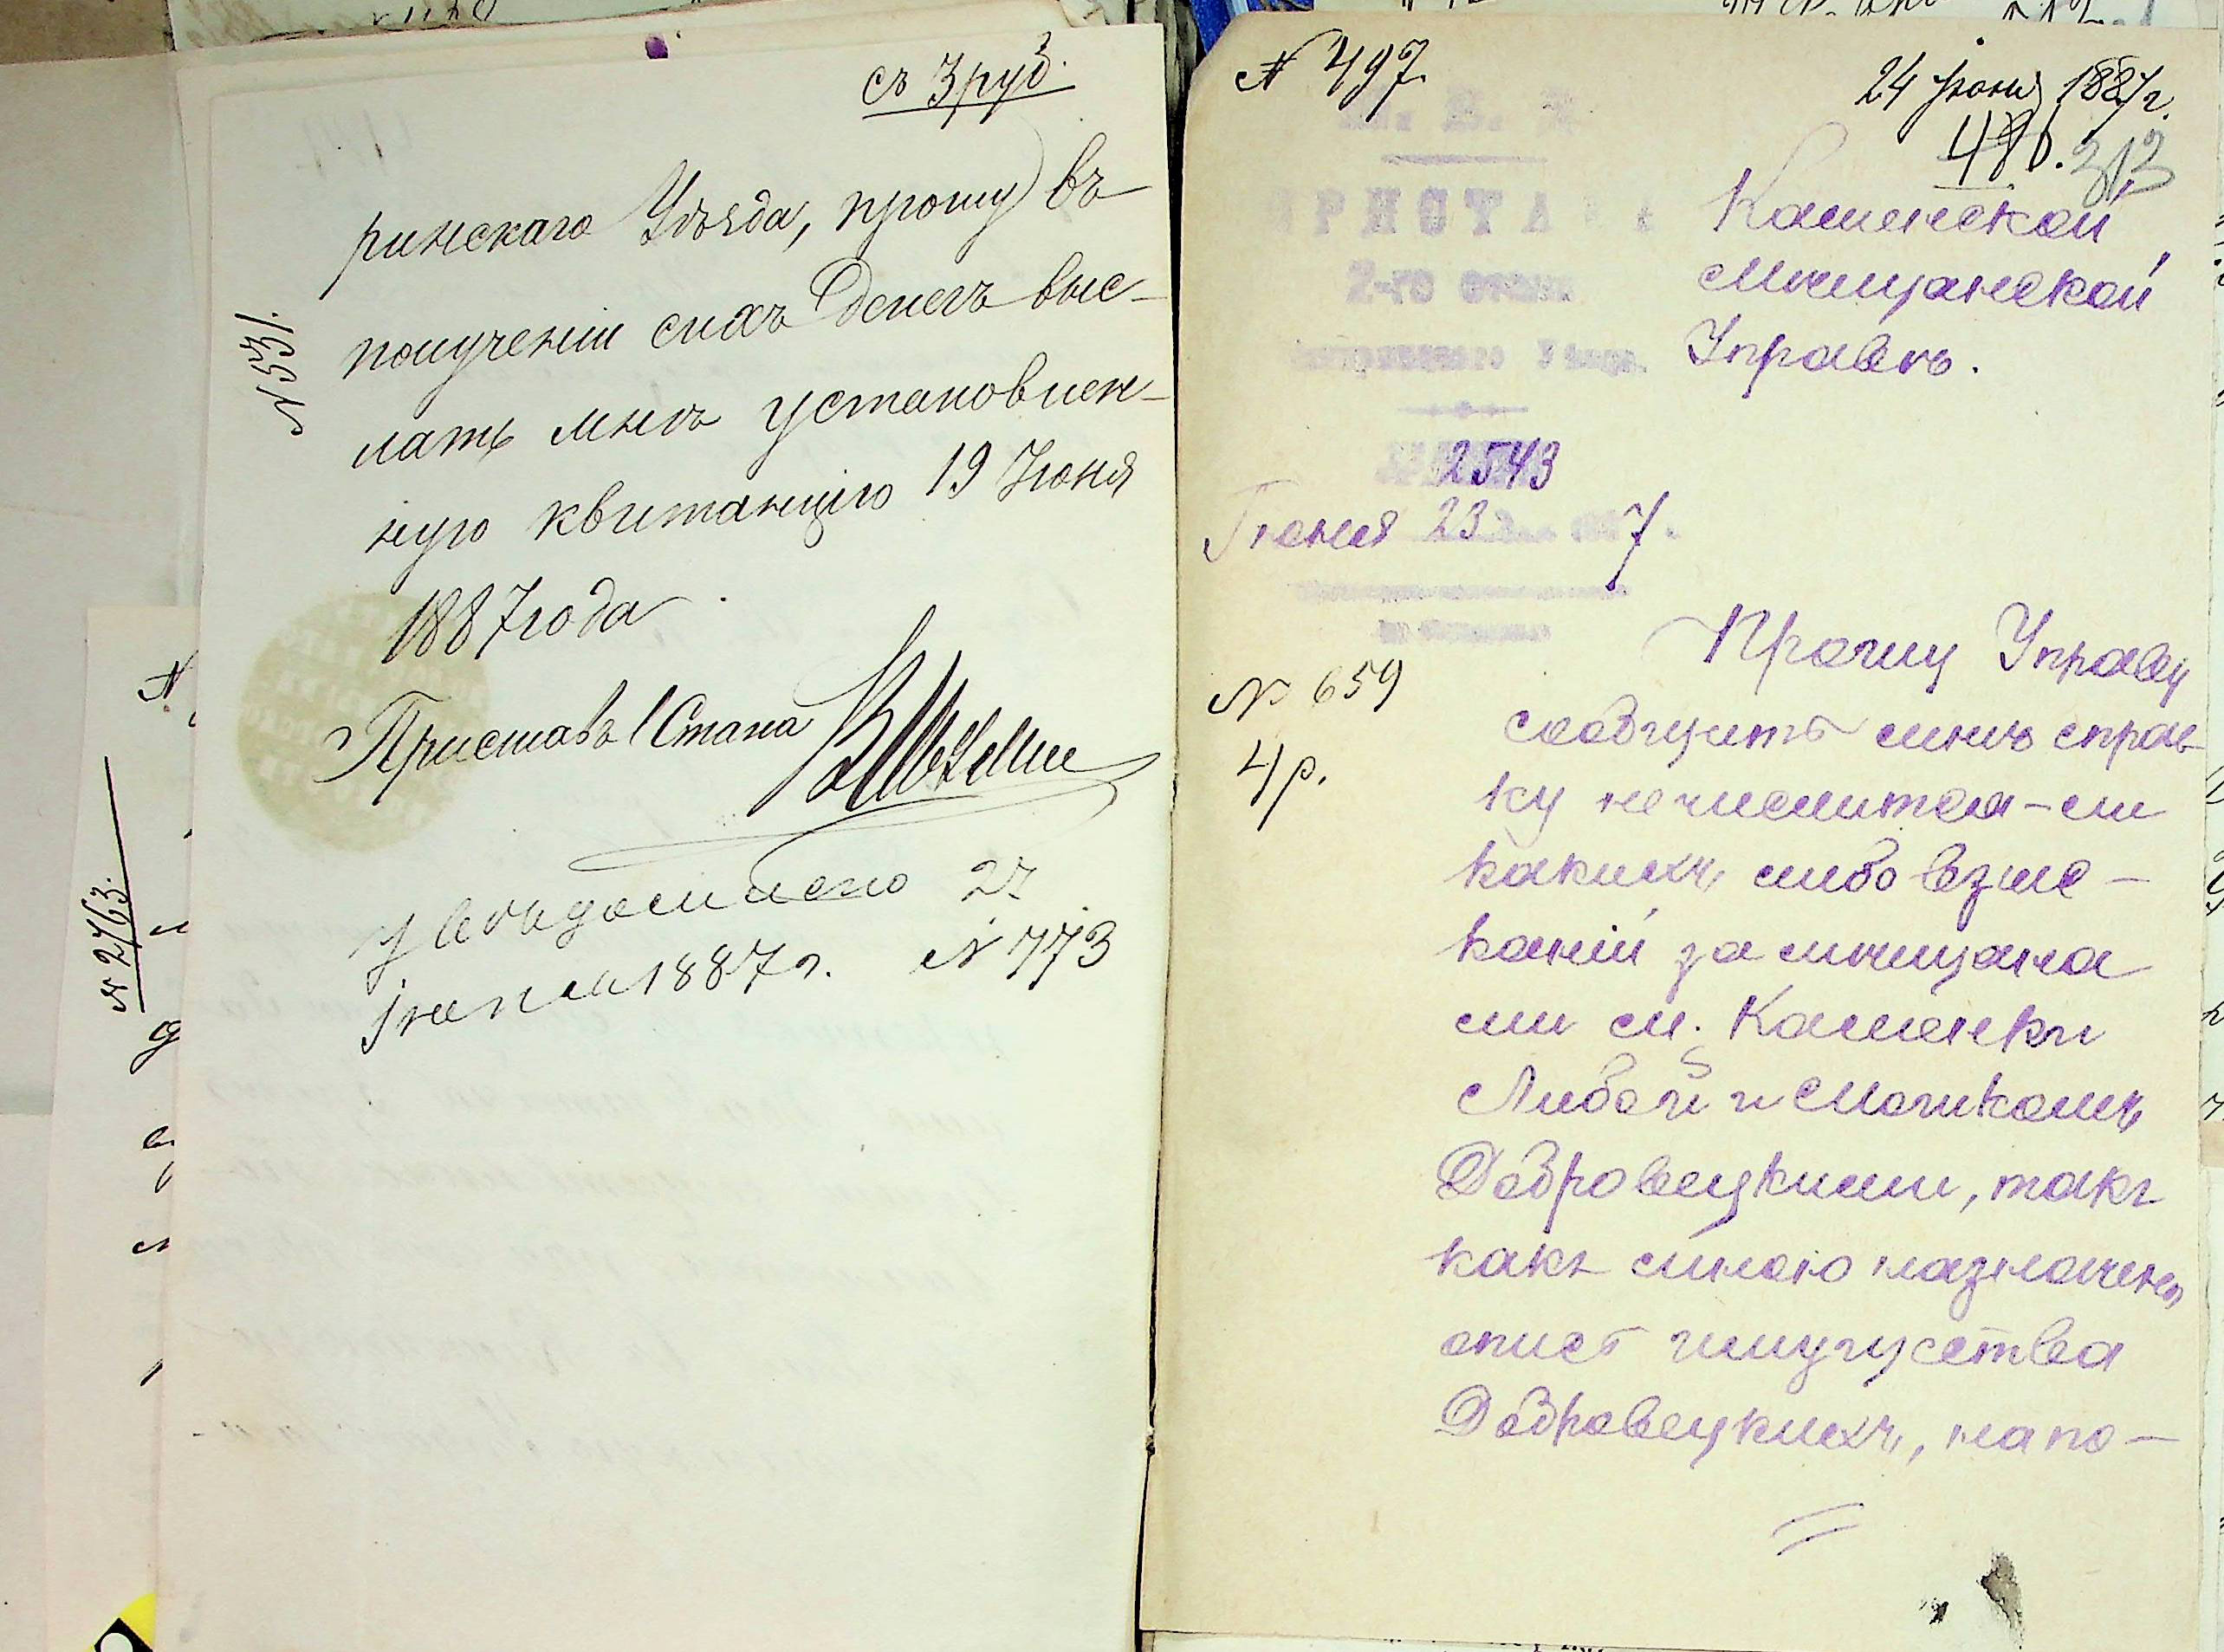 съ 3 руб.
ринскаго Уѣзда, прошу въ
полученіи сихъ денегъ выс-
лать мнѣ установлен-
ную квитанцію 19 Іюня
1887 года
№ 531.
Приставъ 1 Стана
увѣдомлено 27
іюня 1887 г. № 773
№ 2763.
№ 497.
24 Іюня 1887 г.
480. 312
ПРИСТАВА
2-го стана
2543
Іюня 23 7.
№ 659
4 р.
Каменской
Мѣщанской
Управѣ.
Прошу Управу
сообщить мнѣ справ-
ку не числится-ли
какихъ либо взыс-
каній за мѣщана
ми м. Каменки
Любой и Мошкомъ
Добровецкими, такъ
какъ мною назначена
опись имущества
Добровецкихъ, на по-